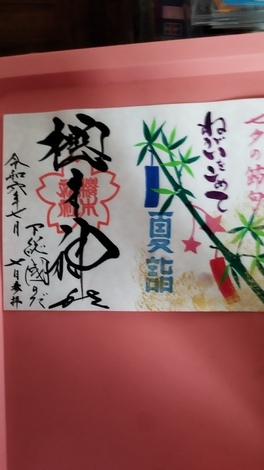 夕の節句
ねがいをこめて
夏詣
櫻木神社
櫻木神社
下総國のだ
令和六年七月
七日参拝